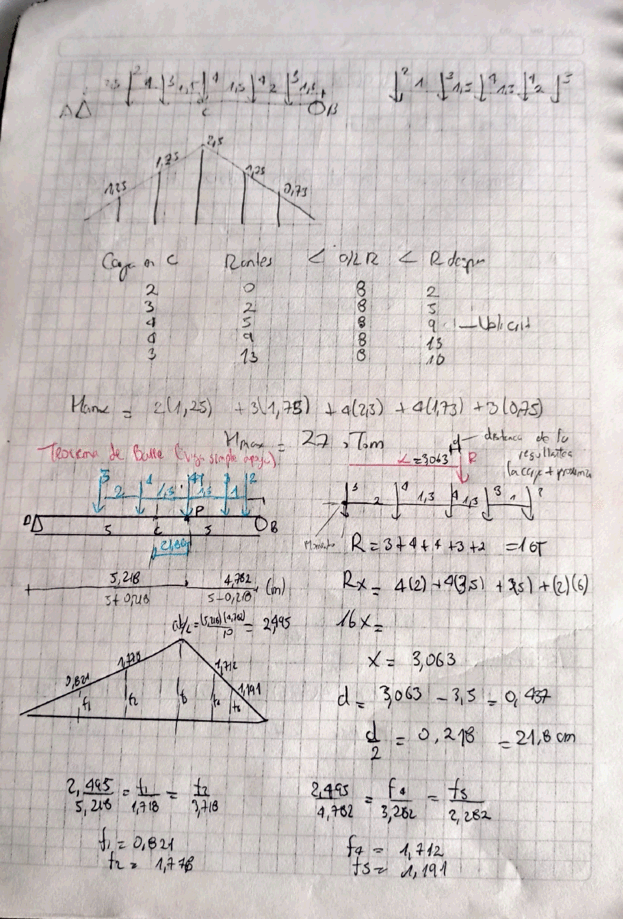 2 1 3 1,5 4 1,5 4 2 3
A C B
2 1 3 1,5 4 1,5 4 2 3
2,5
1,75
1,25
1,25
0,75
Carga en C Rantes < 0/2 R <
2 0 8 2
3 2 8 5
4 5 8 9 — Ubicación
4 9 8 13
3 13 8 16
Mmax = 2(1,25) + 3(1,75) + 4(2,5) + 4(1,75) + 3(0,75)
Mmax = 27 Tom
Teorema de Barre (viga simple apoya)
d — distancia de la resultante
la carga + proxima
L = 3,063 R
3 2 4 1,5 4 1,5 3 1 2
P
A B
5 C 5
21,80
3 2 4 1,5 4 1,5 3 1 2
Momento
R = 3+4+4+3+2 = 16T
5,218 4,782 (m)
5+0,218 5-0,218
Rx = 4(2) + 4(3,5) + 3(5) + (2)(6)
ab/L = (5,218)(4,782)/10 = 2,495
16x =
x = 3,063
1,778
1,712
0,821
1,191
f1 f2 f4 f5
d = 3,063 - 3,5 = 0,437
d/2 = 0,218 = 21,8 cm
2,495/5,218 = f1/1,718 = f2/3,718
2,495/4,782 = f4/3,282 = f5/2,282
f1 = 0,821
f2 = 1,778
f4 = 1,712
f5 = 1,191